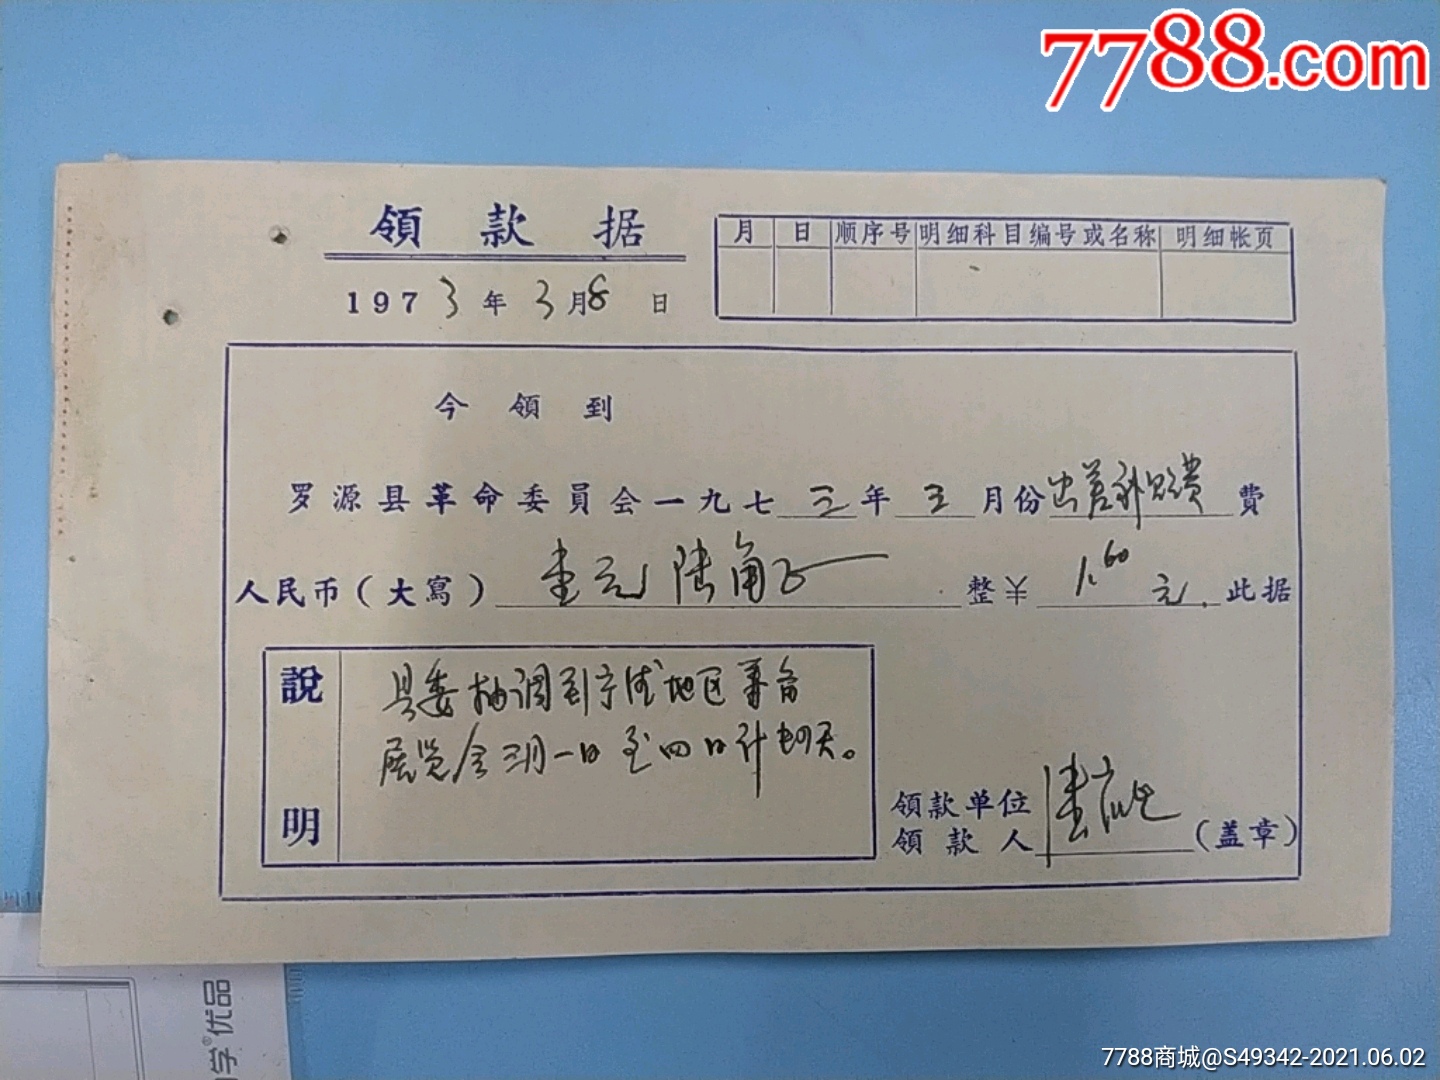 7788.com
領款据
1973年3月8日
月 日 顺序号 明细科目编号或名称 明细帐页
今領到
罗源县革命委員会一九七三年三月份出差补贴费費
人民币（大寫）壹元陆角正 整￥1.60元.此据
說明
县委抽调到宁德地区筹备
展览会三月一日至四日计四天。
領款单位
領款人（盖章）
学®优品
7788商城@S49342-2021.06.02